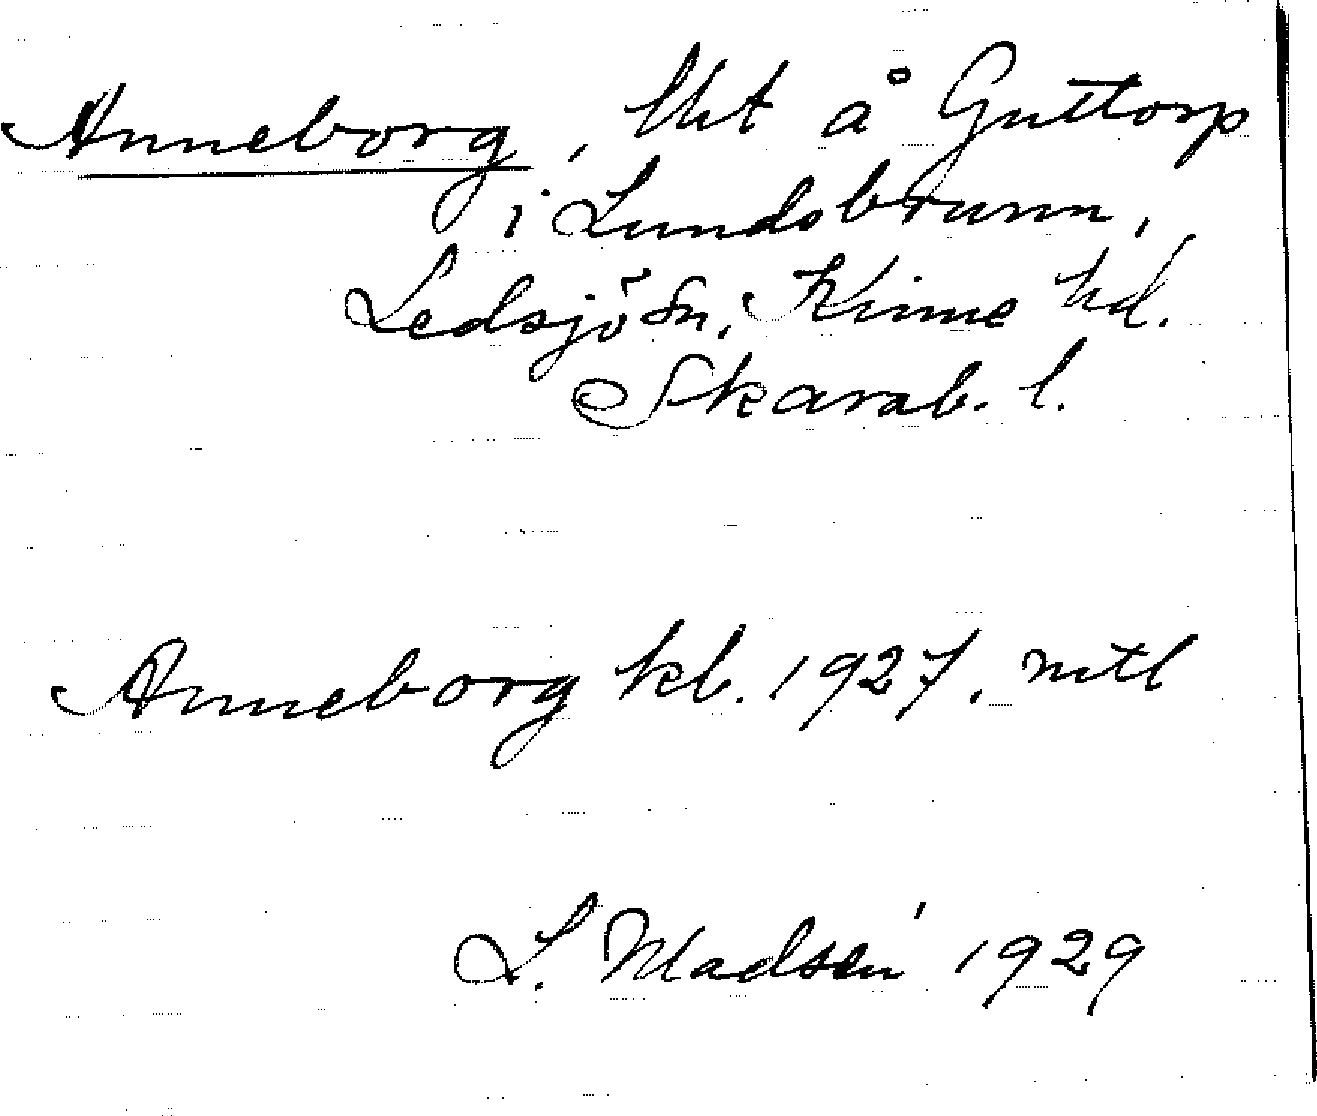 Anneborg, lht å Guttorp
i Lundsbrunn,
Ledsjö sn, Kinne hd.
Skarab. l.
Anneborg kb. 1927, mtl
L. Madsén 1929